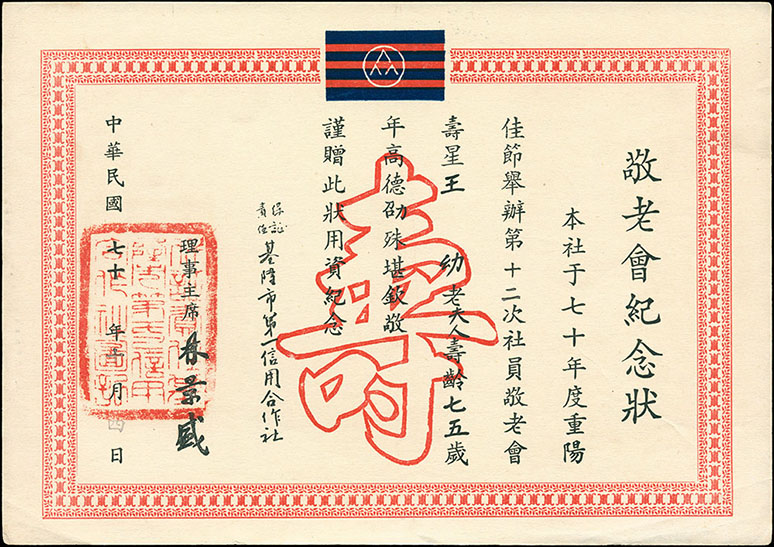 敬老會紀念狀
本社于七十年度重陽
佳節舉辦第十二次社員敬老會
壽星王 幼老夫人壽齡七五歲
年高德劭殊堪欽敬
謹贈此狀用資紀念
壽
保證責任基隆市第一信用合作社
理事主席 林景盛
中華民國七十年十月四日